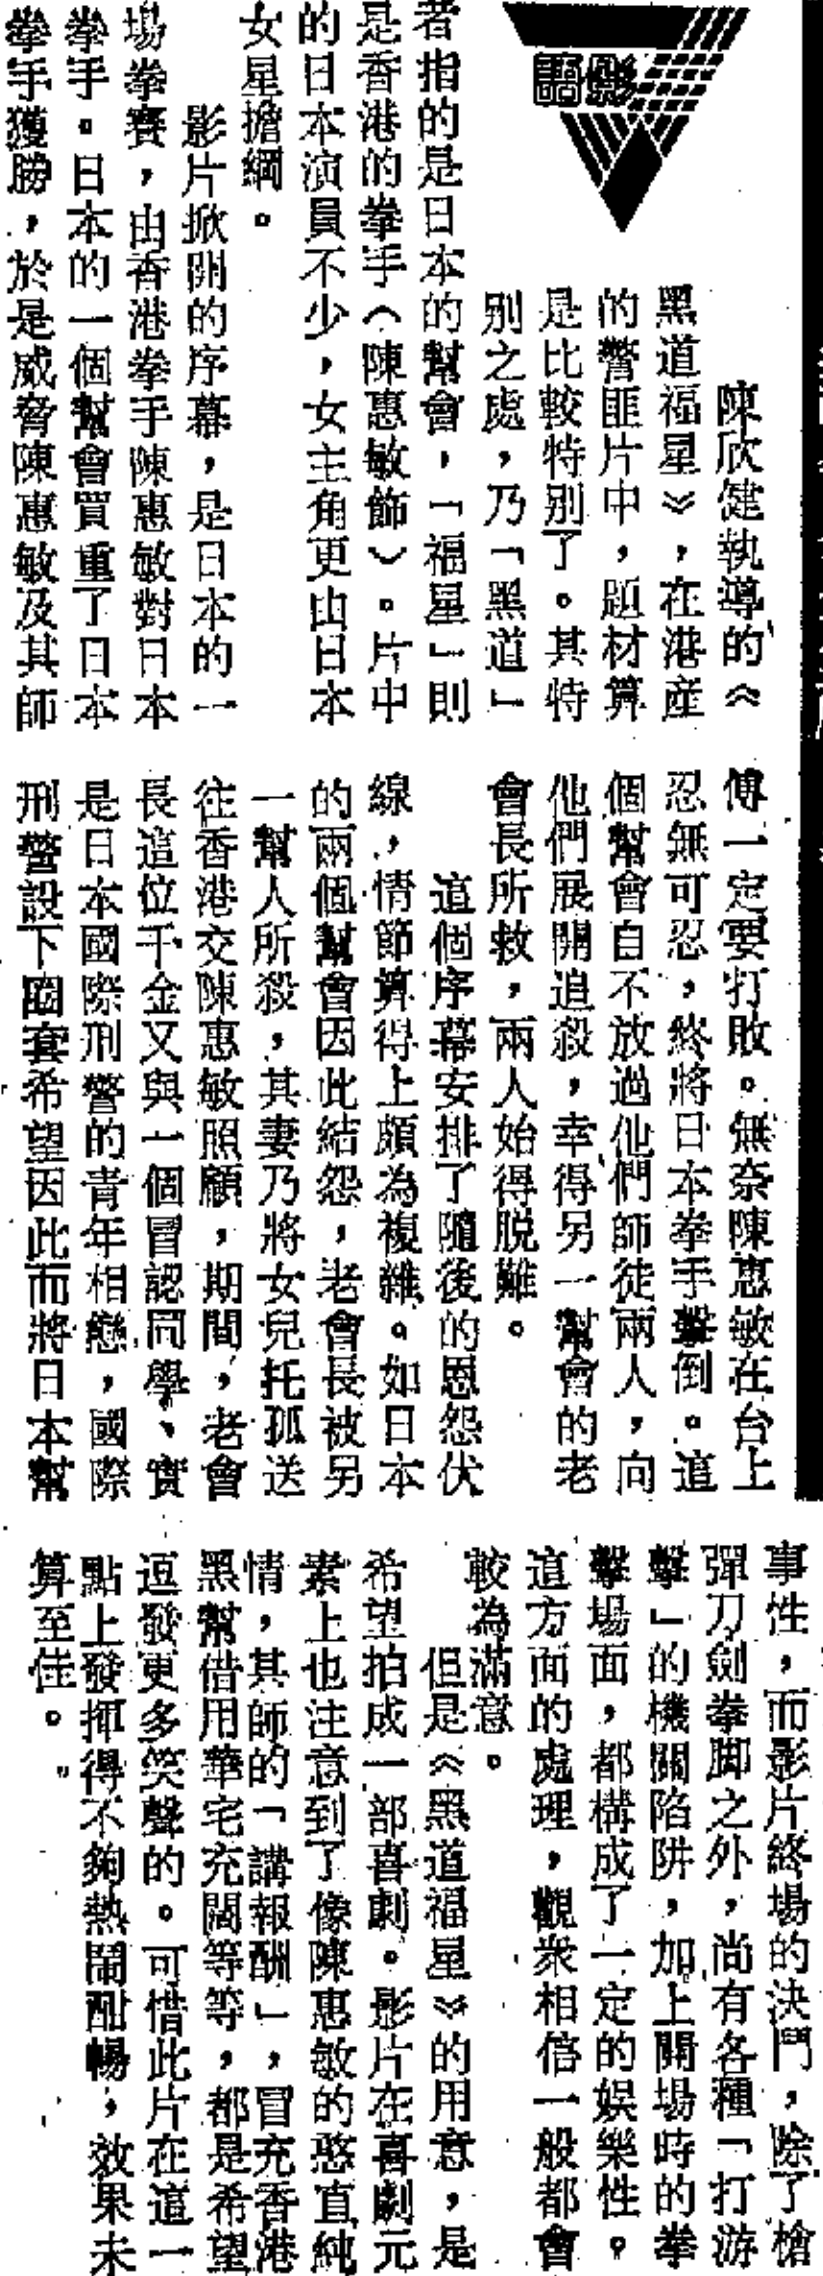 影話
陳欣健執導的《
黑道福星》，在港產
的警匪片中，題材算
是比較特別了。其特
別之處，乃「黑道」
者指的是日本的幫會，「福星」則
是香港的拳手（陳惠敏飾）。片中
的日本演員不少，女主角更由日本
女星擔綱。
影片掀開的序幕，是日本的一
場拳賽，由香港拳手陳惠敏對日本
拳手。日本的一個幫會買重了日本
拳手獲勝，於是威脅陳惠敏及其師
傅一定要打敗。無奈陳惠敏在台上
忍無可忍，終將日本拳手擊倒。這
個幫會自不放過他們師徒兩人，向
他們展開追殺，幸得另一幫會的老
會長所救，兩人始得脱難。
這個序幕安排了隨後的恩怨伏
線，情節算得上頗為複雜。如日本
的兩個幫會因此結怨，老會長被另
一幫人所殺，其妻乃將女兒托孤送
往香港交陳惠敏照顧，期間，老會
長這位千金又與一個冒認同學、實
是日本國際刑警的青年相戀，國際
刑警設下圈套希望因此而將日本幫
事性，而影片終場的決鬥，除了槍
彈刀劍拳脚之外，尚有各種「打游
擊」的機關陷阱，加上開場時的拳
擊場面，都構成了一定的娛樂性。
這方面的處理，觀衆相信一般都會
較為滿意。
但是《黑道福星》的用意，是
希望拍成一部喜劇。影片在喜劇元
素上也注意到了像陳惠敏的憨直純
情，其師的「講報酬」，冒充香港
黑幫借用華宅充闊等等，都是希望
逗發更多笑聲的。可惜此片在這一
點上發揮得不夠熱鬧酣暢，效果未
算至佳。